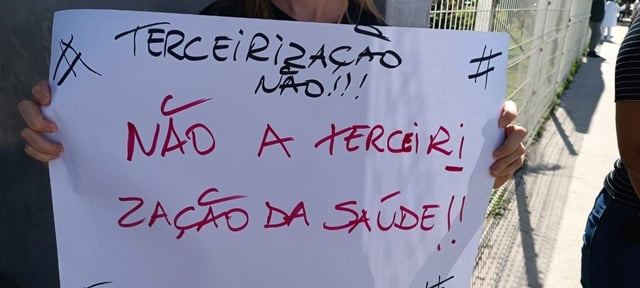 TERCEIRIZAÇÃO
NÃO!!!
#
#
NÃO A TERCEIRI
ZAÇÃO DA SAÚDE!!